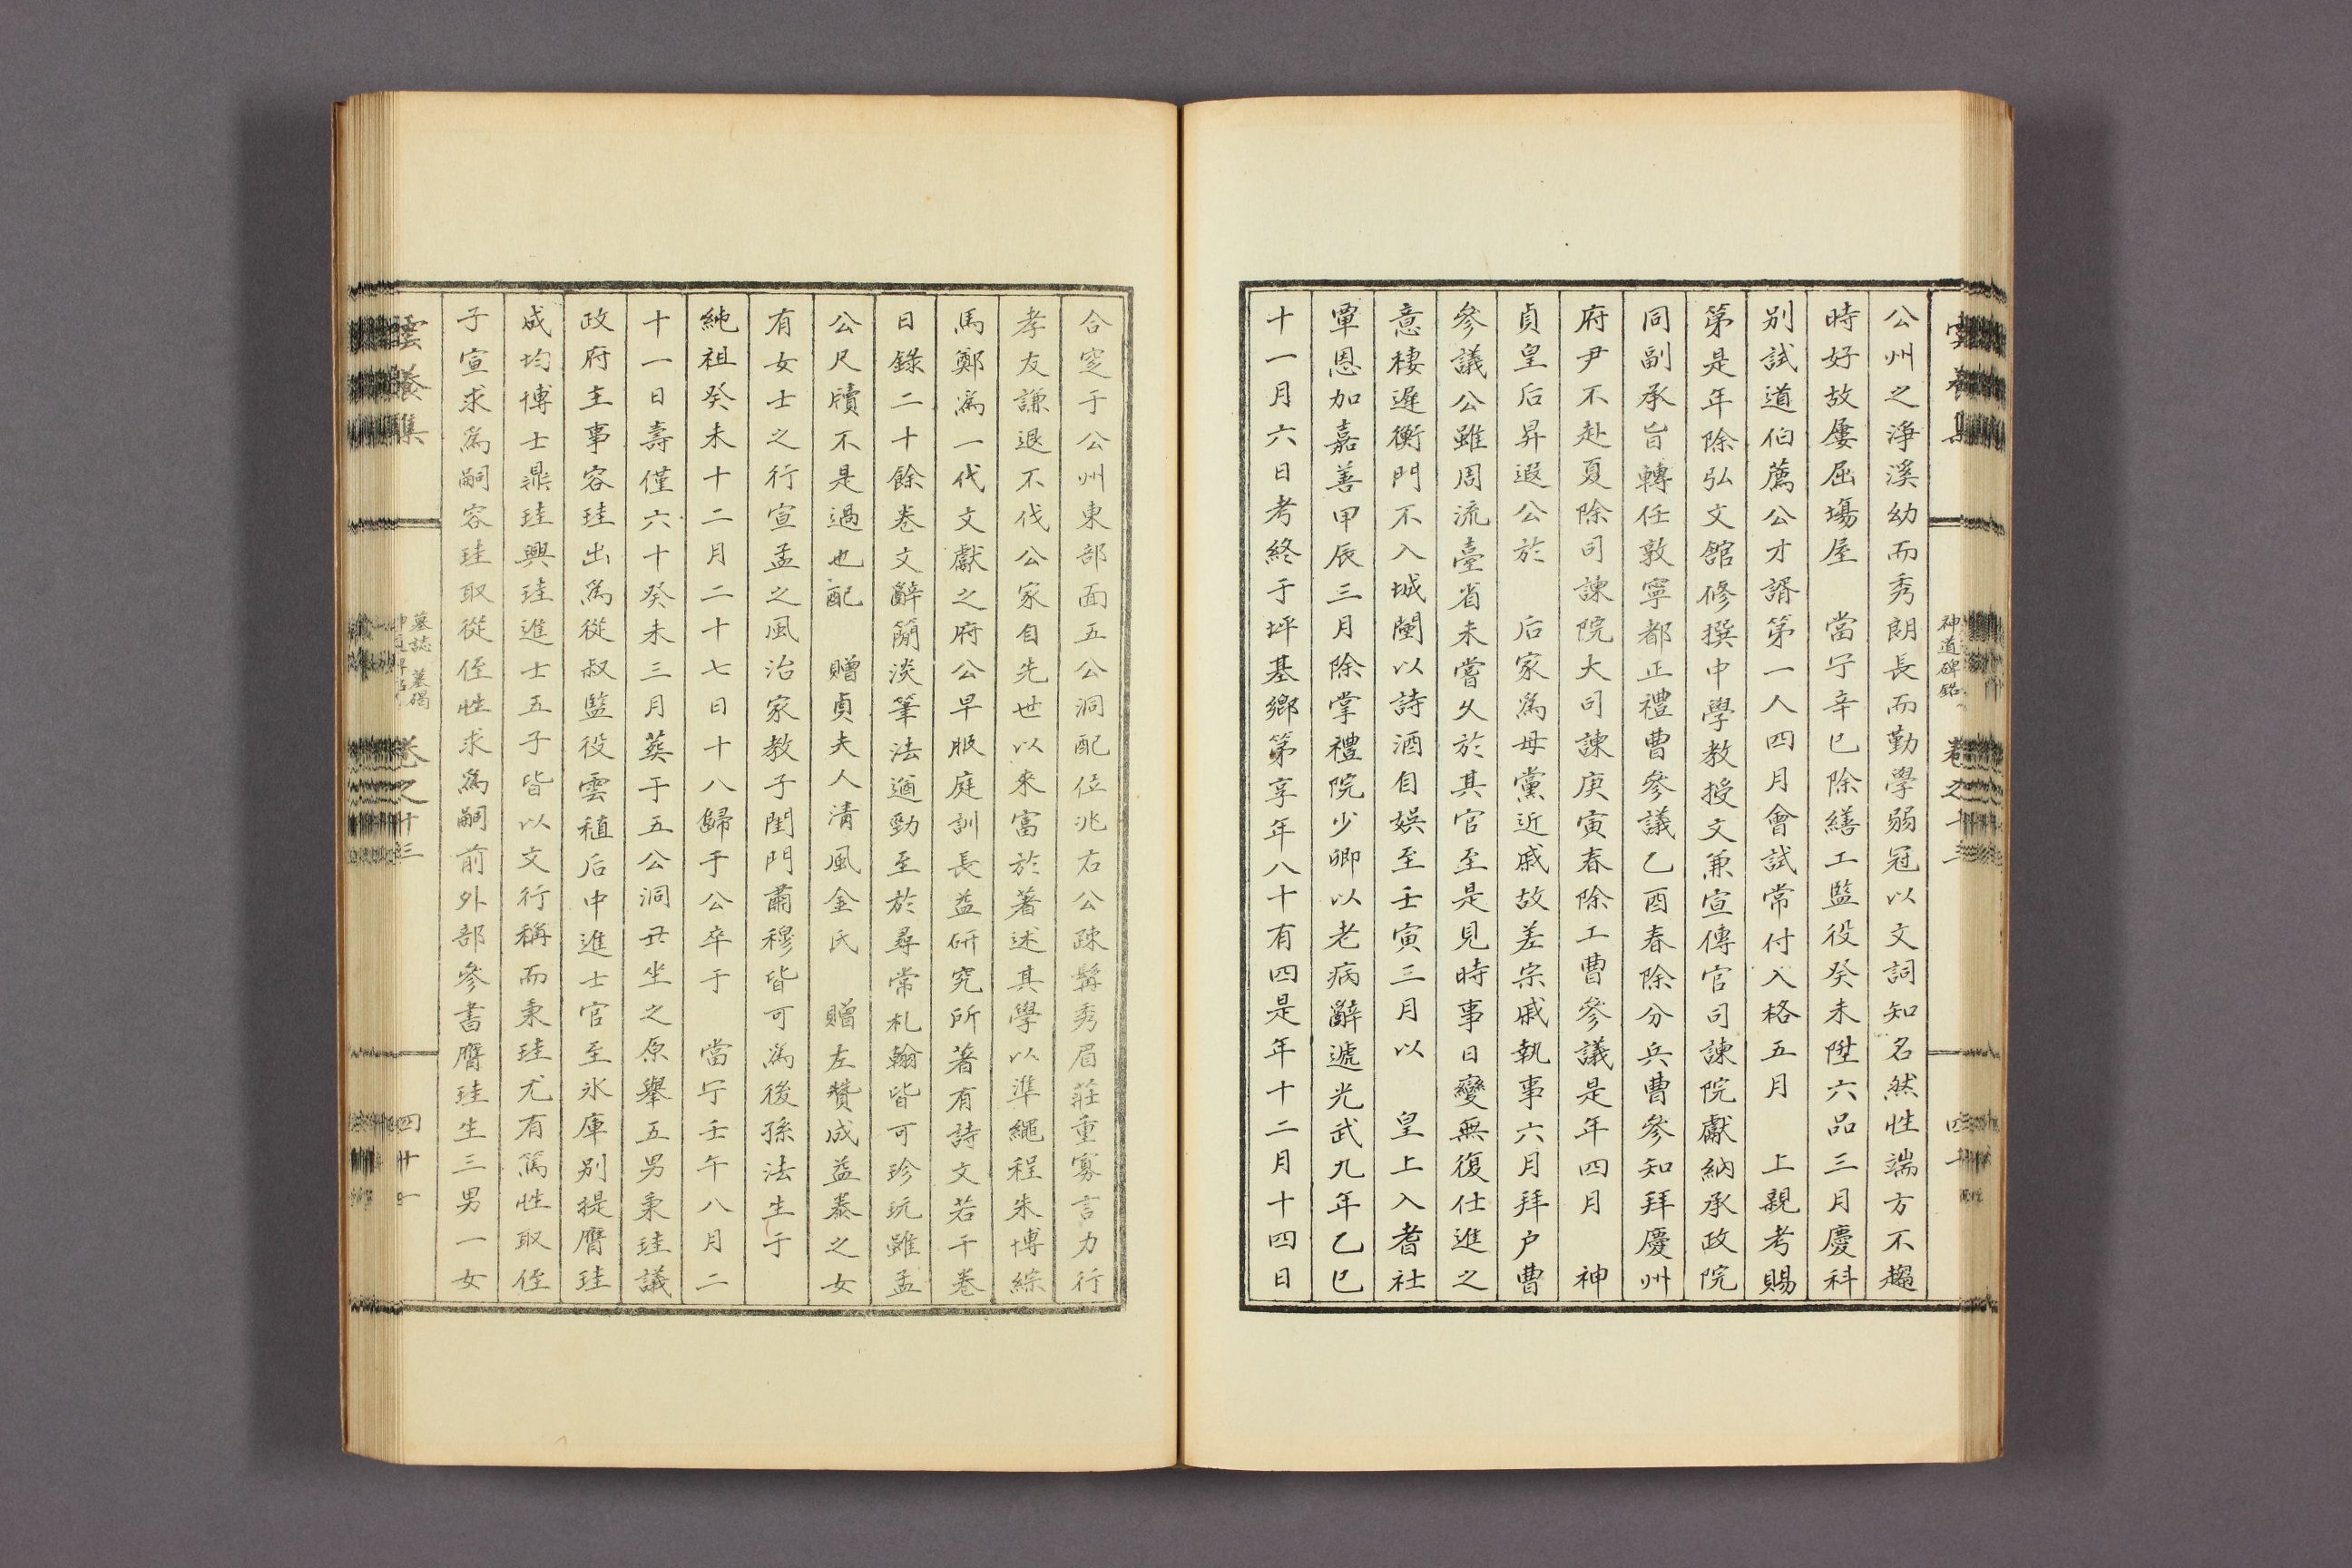 公州之淨溪幼而秀朗長而勤學弱冠以文詞知名然性端方不趨
時好故屢屈場屋　當宁辛巳除繕工監役癸未陞六品三月慶科
別試道伯薦公才諝第一人四月會試常付入格五月　上親考賜
第是年除弘文館修撰中學教授文兼宣傳官司諫院獻納承政院
同副承旨轉任敦寧都正禮曹參議乙酉春除分兵曹參知拜慶州
府尹不赴夏除司諫院大司諫庚寅春除工曹參議是年四月　神
貞皇后昇遐公於　后家爲母黨近戚故差宗戚執事六月拜户曹
參議公雖周流臺省未嘗久於其官至是見時事日變無復仕進之
意棲遲衡門不入城闉以詩酒自娛至壬寅三月以　皇上入耆社
覃恩加嘉善甲辰三月除掌禮院少卿以老病辭遞光武九年乙巳
十一月六日考終于坪基鄉第享年八十有四是年十二月十四日
神道碑銘
合窆于公州東部面五公洞配位兆右公疎髯秀眉莊重寡言力行
孝友謙退不伐公家自先世以來富於著述其學以準繩程朱博綜
馬鄭爲一代文獻之府公早服庭訓長益研究所著有詩文若干卷
日錄二十餘卷文辭簡淡筆法遒勁至於尋常札翰皆可珍玩雖孟
公尺牘不是過也配　贈貞夫人清風金氏　贈左贊成益泰之女
有女士之行宣孟之風治家教子閨門肅穆皆可爲後孫法生于
純祖癸未十二月二十七日十八歸于公卒于　當宁壬午八月二
十一日壽僅六十癸未三月葬于五公洞丑坐之原擧五男秉珪議
政府主事容珪出爲從叔監役雲稙后中進士官至氷庫別提膺珪
成均博士鼎珪興珪進士五子皆以文行稱而秉珪尤有篤性取侄
子宣求爲嗣容珪取從侄性求爲嗣前外部參書膺珪生三男一女
雲養集
墓誌　墓碣
卷之十三
四十一